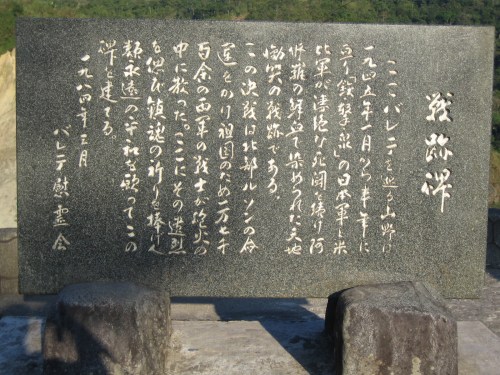 戦跡碑
ここバレテを巡る山野は
一九四五年一月から半年に
亘り「鉄撃泉」の日本軍と米
比軍が凄絶な死闘を繰り
修羅の鮮血で染められた天地
慟哭の戦跡である。
この決戦は北部ルソンの命
運をかけ祖国のため一万七千
百余の両軍の戦士が砲火の
中に散った。ここにその遺烈
を偲び鎮魂の祈りを捧げ人
類永遠の平和を願ってこの
碑を建てる。
一九八四年三月
バレテ慰霊会